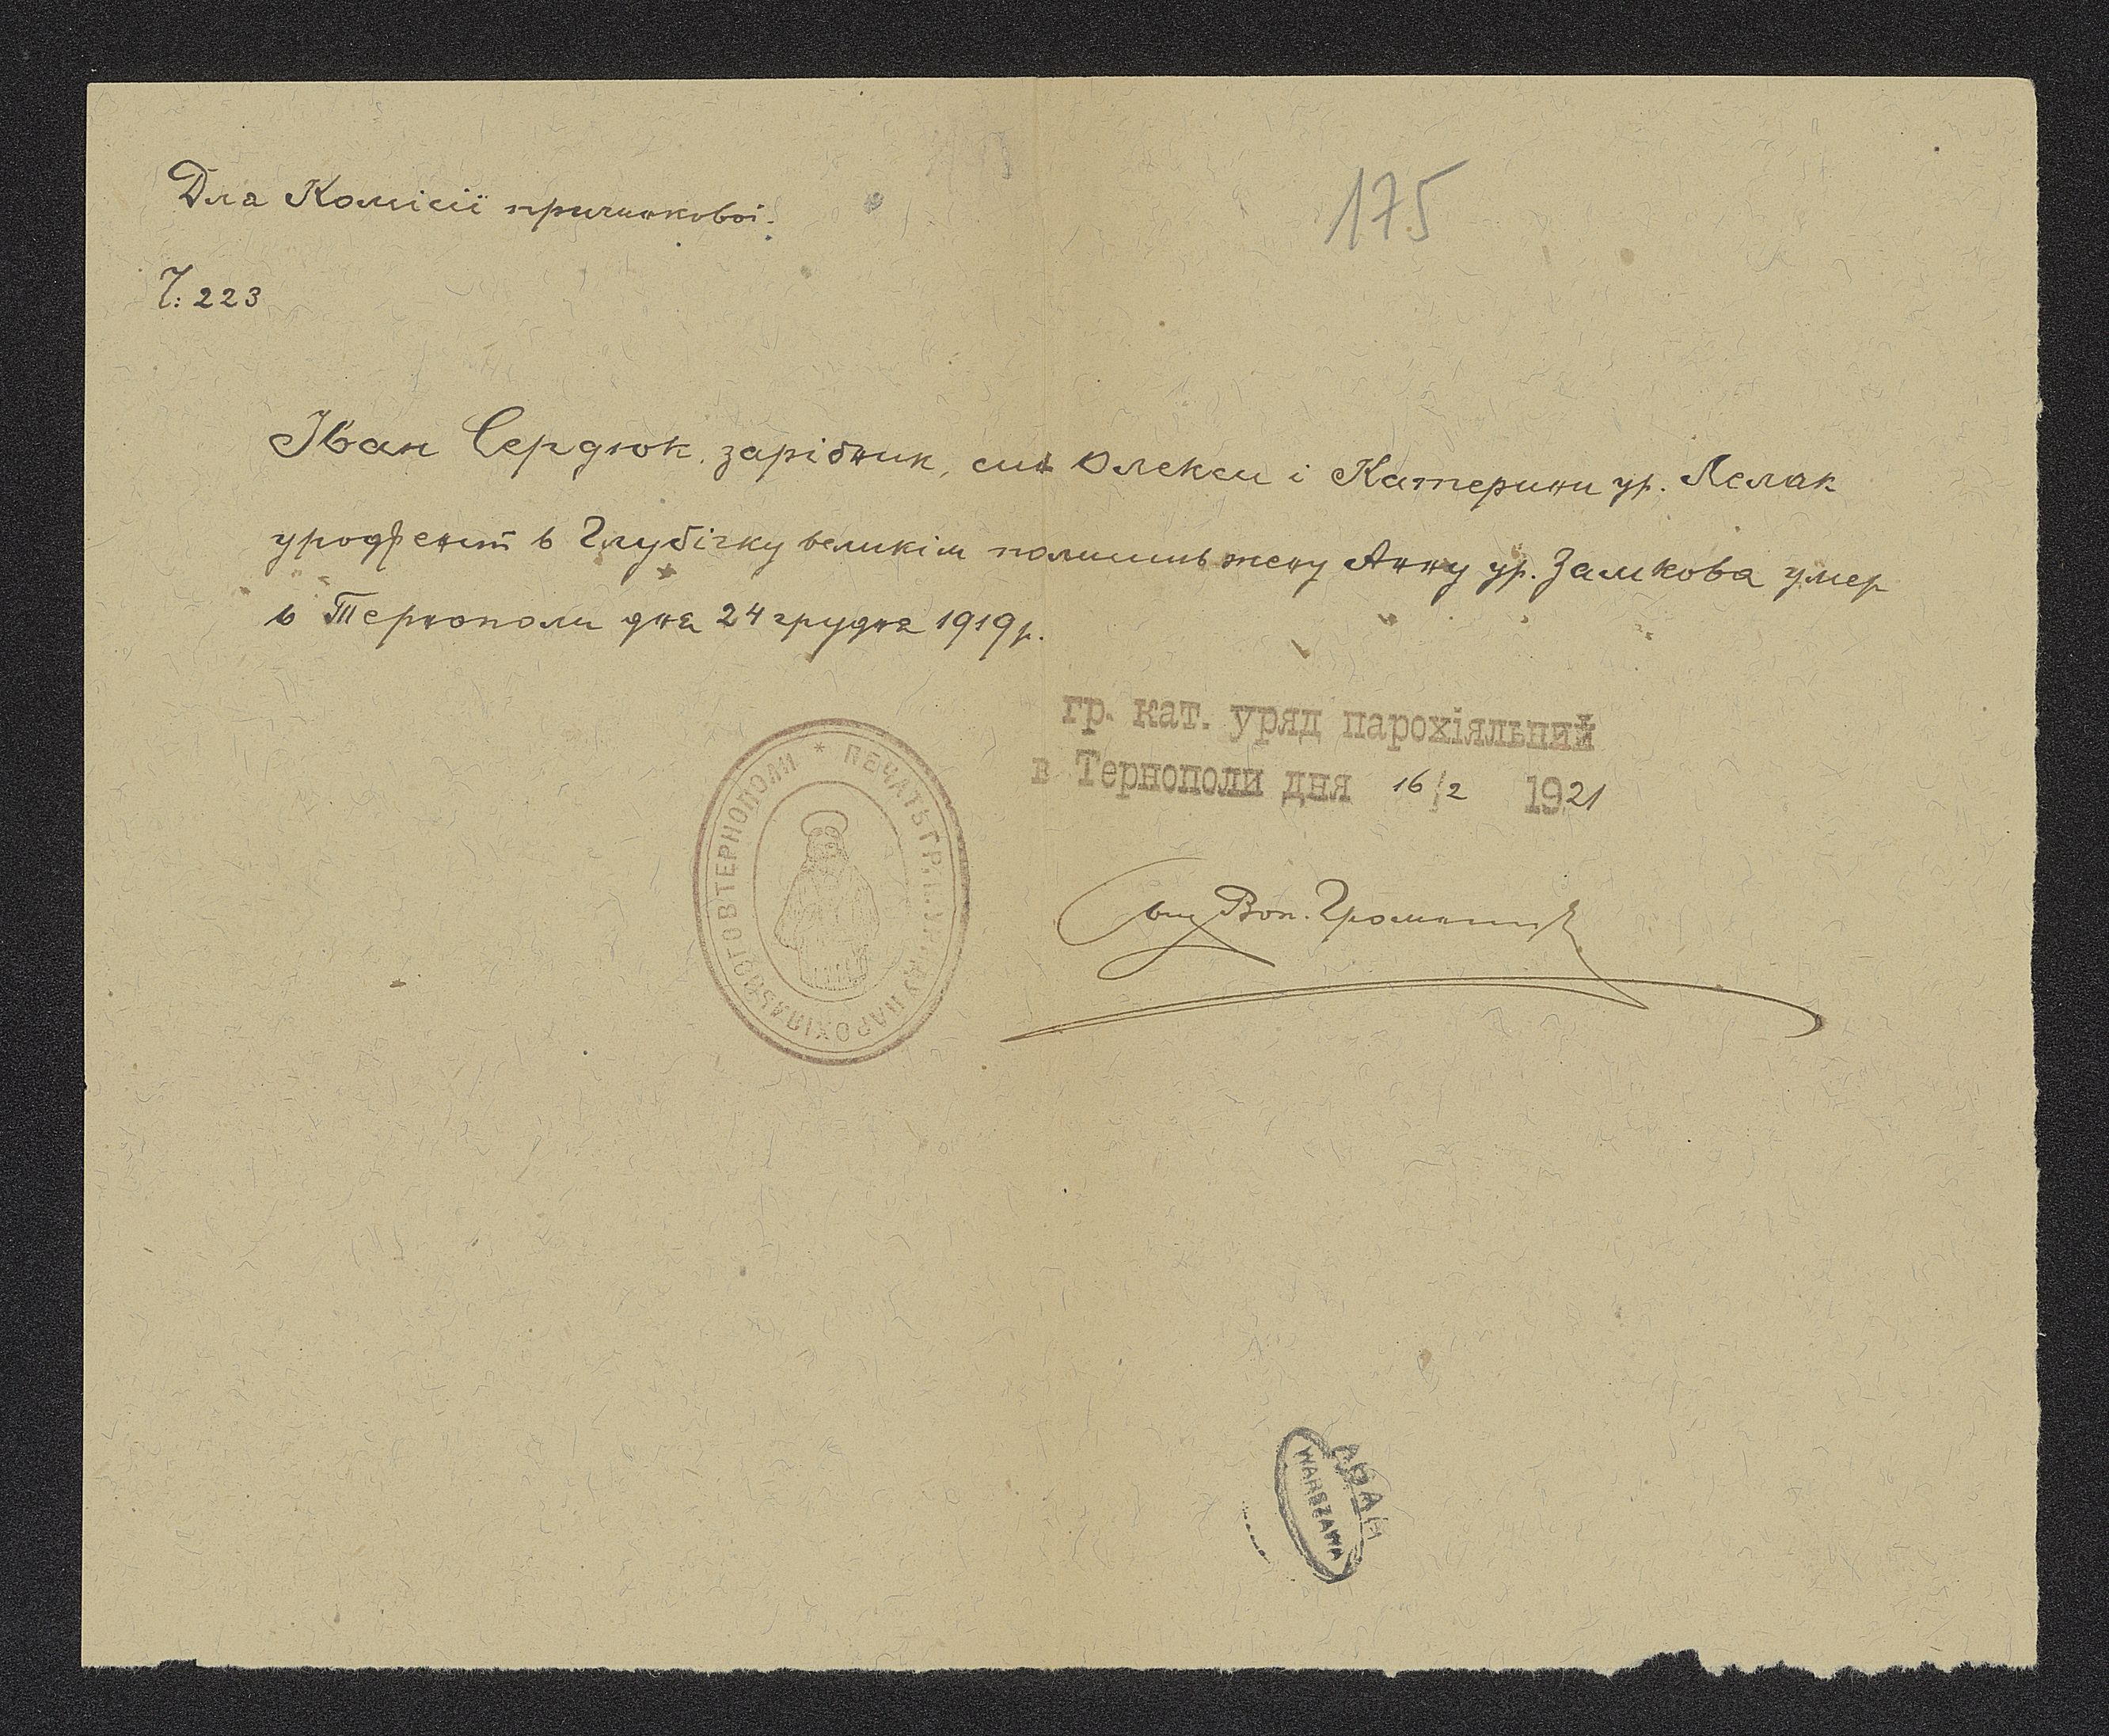 Для Комісії
175
Ч: 223
Іван Сердюк, зарібник, син Олекси і Катерини ур. Лелак
уроджений в Глубічку великім полишив жену Анну ур. Замкова умер
в Тернополи дня 24 грудня 1919 р.
гр. кат. уряд парохіяльний
в Тернополи дня 16/2 1921
* ПЕЧАТЬ ГР. К. УРЯДУ ПАРОХІЯЛЬНОГО В ТЕРНОПОЛИ
WARSZAWA